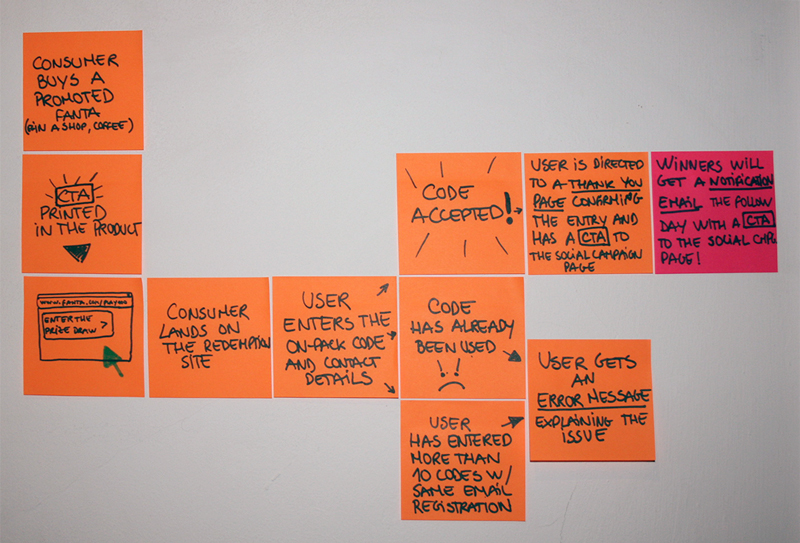 CONSUMER
BUYS A
PROMOTED
FANTA
IN A SHOP, COFFEE)
CTA
PRINTED
IN THE PRODUCT
WWW.FANTA.
ENTER THE
PRIZE DRAW >
CONSUMER
LANDS ON
THE REDEMPTION
SITE
USER
ENTERS THE
ON-PACK CODE
AND CONTACT
DETAILS
CODE
ACCEPTED!
USER IS DIRECTED
TO A THANK YOU
PAGE CONFIRMING
THE ENTRY AND
HAS A CTA TO
THE SOCIAL CAMPAIGN
PAGE
WINNERS WILL
GET A NOTIFICATION
EMAIL THE FOLLOW
DAY WITH A CTA
TO THE SOCIAL
PAGE!
CODE
HAS ALREADY
BEEN USED
USER
HAS ENTERED
MORE THAN
10 CODES W/
SAME EMAIL
REGISTRATION
USER GETS
AN
ERROR MESSAGE
EXPLAINING THE
ISSUE